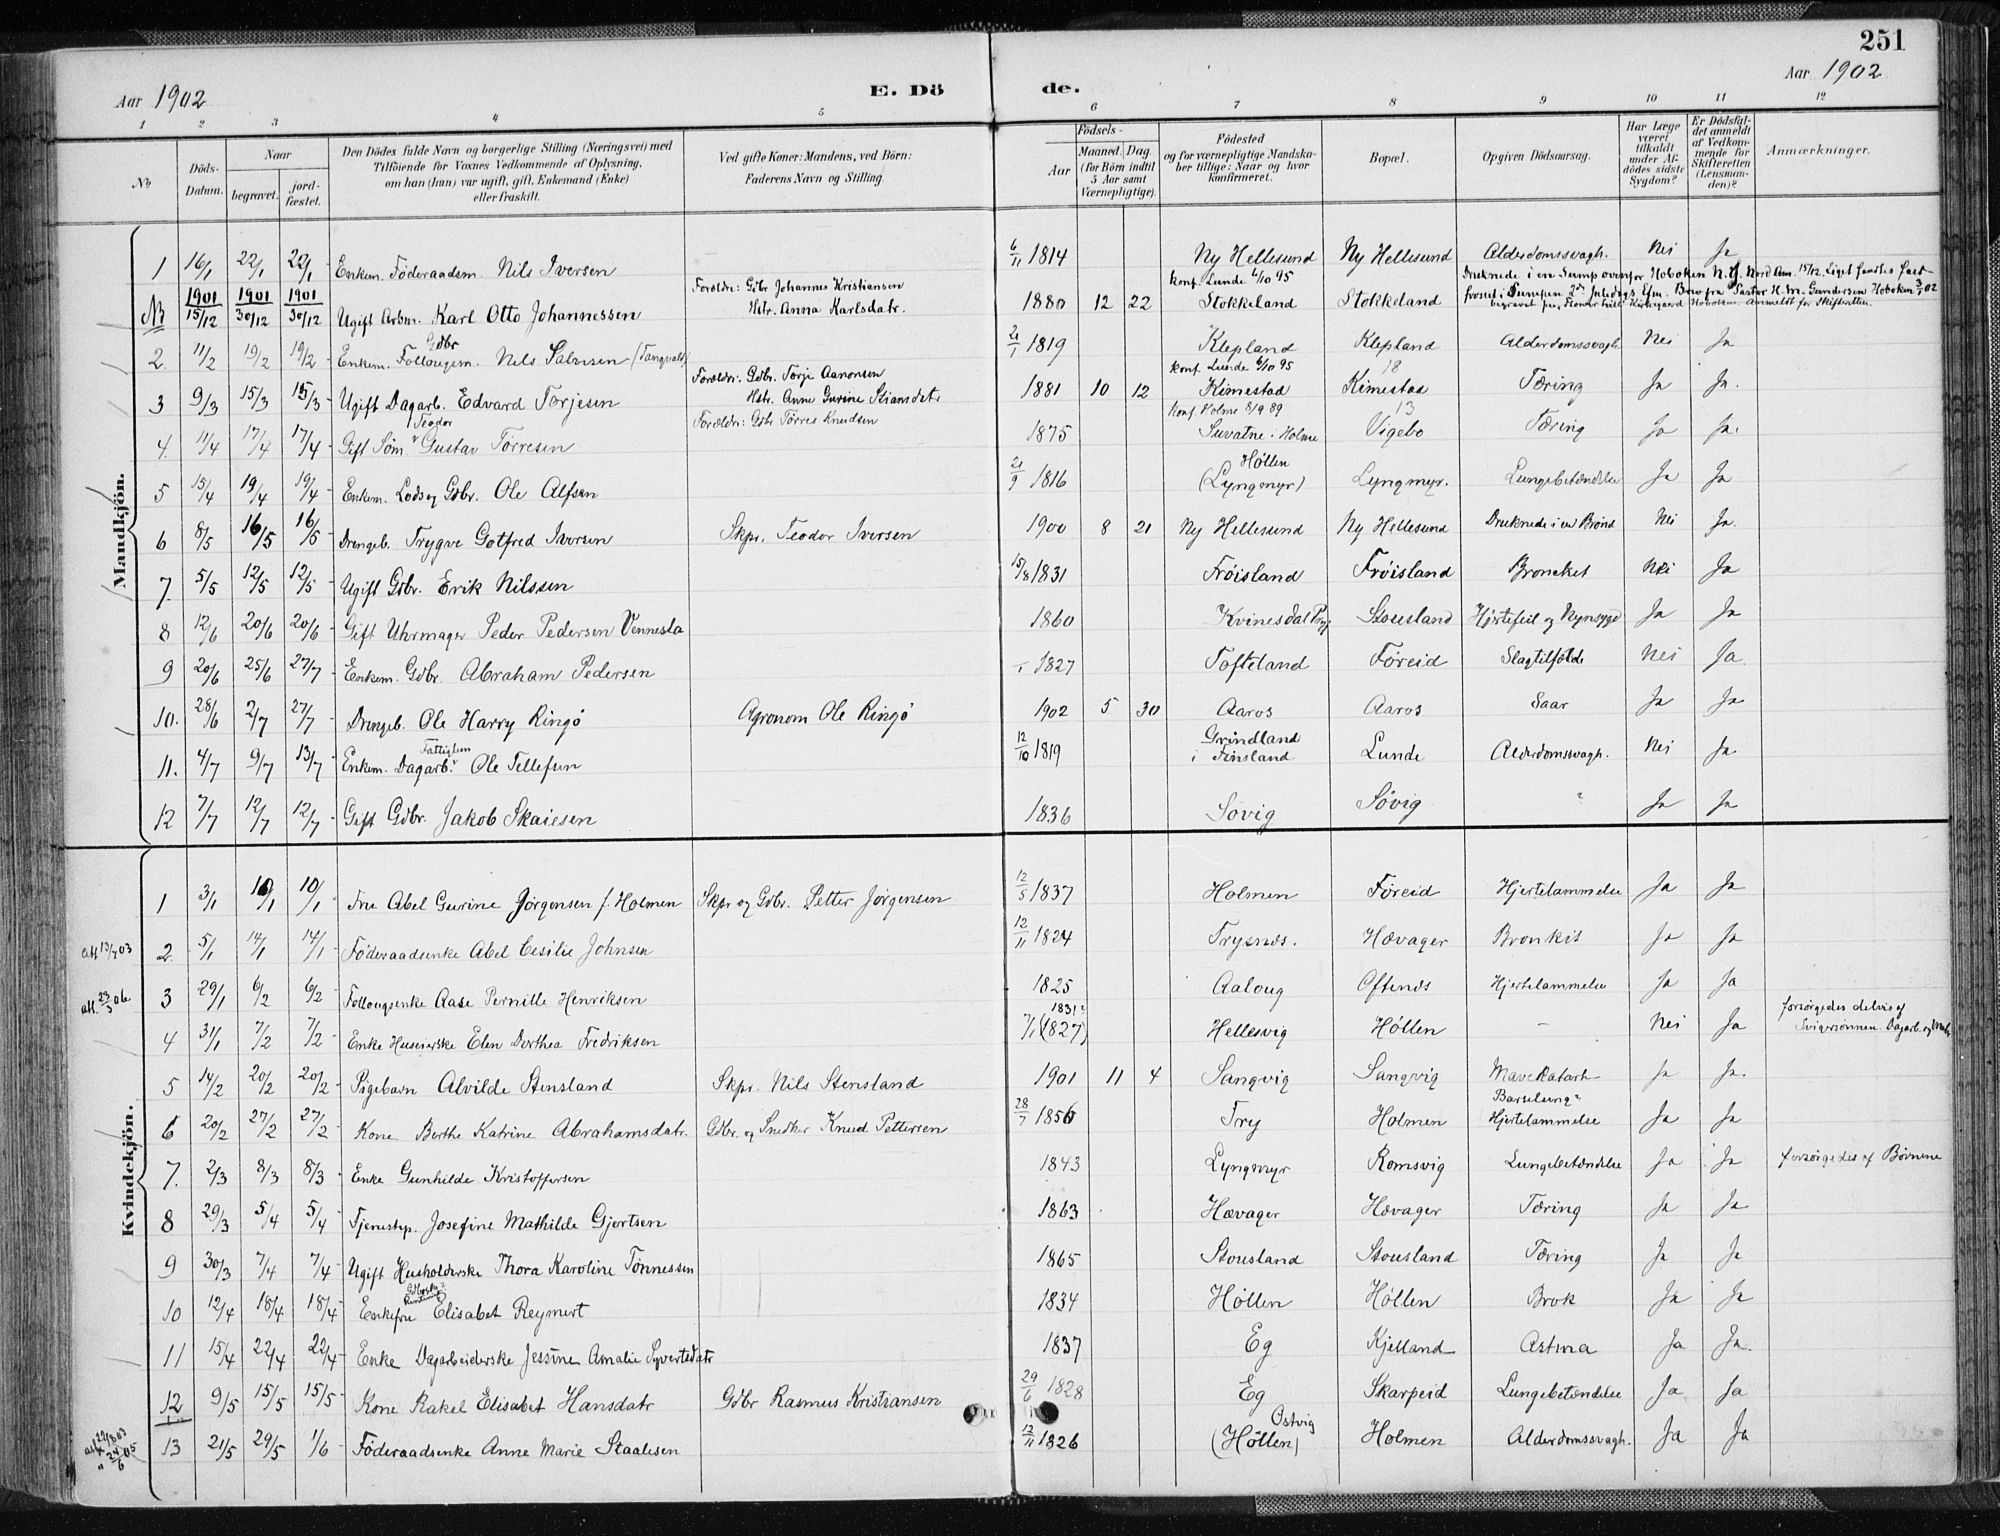 251
Aar 1902
E. Dö
de.
Aar 1902
1 2 3 4 5 6 7 8 9 10 11 12
No
Döds-Datum.
Naar
begravet.
jord-fæstet.
Den Dödes fulde Navn og borgerlige Stilling (Næringsvei) med
Tilföiende for Voxnes Vedkommende af Oplysning,
om han (hun) var ugift, gift, Enkemand (Enke)
eller fraskilt.
Ved gifte Koner: Mandens, ved Börn:
Faderens Navn og Stilling
Födsels-
Aar
Maaned. Dag
(for Börn indtil
5 Aar samt
Værnepligtige).
Födested
og for værnepligtige Mandska-
ber tillige: Naar og hvor
konfirmeret.
Bopæl.
Opgiven Dödsaarsag.
Har Læge
været
tilkaldt
under Af-
dödes sidste
Sygdom?
Er Dödsfal-
det anmeldt
af Vedkom-
mende for
Skifteretten
(Lensman-
den)?
Anmærkninger.
Mandkjön.
1 16/1 22/1 22/1 Enkem. Föderaadsm. Nils Iversen 6/11 1814 Ny Hellesund Ny Hellesund Alderdomssvagh. Nei Ja
1901 1901 1901 Foreldr: Gdbr Johannes Kristiansen konf. Lunde 6/10 95 Druknede i en Sump ovenfor Hoboken N.J. Nord Am. 15/12. Liget fandtes fast-
N3 15/12 30/12 30/12 Ugift Arbm. Karl Otto Johannessen Hstr. Anna Karlsdatr. 1880 12 22 Stokkeland Stokkeland frosset i Sumpen 2den Juledags Efm. Brev fra Pastor H. M. Gundersen Hoboken 3/1 02
begravet paa Flower hill Kirkegaard Hoboken. Anmeldt for Skifteretten.
2. 11/2 19/2 19/2 Enkem. Gdbr Follougsm. Nils Salvesen (Tangvald) 21/1 1819 Klepland Klepland Alderdomssvagh. Nei Ja
Foreldr: Gdbr. Torje Aanonsen konf. Lunde 6/10 95 18
3 9/3 15/3 15/3 Ugift Dagarb. Edvard Torjesen Hstr. Anne Gurine Stiansdtr. 1881 10 12 Kimestad Kimestad Tæring Ja Ja.
Teodor Foreldr: Gdbr Törres Knudsen konf Holme 8/9 89 13
4. 11/4 17/4 17/4 Gift Söm. Gustav Törresen 1875 Suvatne i Holme Vigebo Tæring Ja Ja.
5 15/4 19/4 19/4 Enkem. Lods og Gdbr. Ole Alfsen 21/9 1816 Höllen (Lyngmyr) Lyngmyr. Lungebetændelse Ja Ja
6 8/5 16/5 16/5 Drengeb. Trygve Gotfred Iversen Skpr. Teodor Iversen 1900 8 21 Ny Hellesund Ny Hellesund Druknede i en Brönd Nei Ja.
7. 5/5 12/5 12/5 Ugift Gdbr. Erik Nilssen 15/8 1831 Fröisland Fröisland Bronket Nei Ja
8 12/6 20/6 20/6 Gift Uhrmager Peder Pedersen Vennesla 1860 Kvinesdal Stousland Hjertefeil og Nyresyge Ja Ja
9 20/6 25/6 27/7 Enkem. Gdbr. Abraham Pedersen 1827 Tofteland Föreid Slagtilfælde Nei Ja.
10. 28/6 2/7 27/7 Drengeb. Ole Harry Ringö Agronom Ole Ringö 1902 5 30 Aaros Aaros Saar Ja Ja
11. 4/7 9/7 13/7 Enkem. Fattiglem Dagarb. Ole Tellefsen 12/10 1819 Gründland i Finsland Lunde Alderdomssvagh. Nei Ja
12 7/7 12/7 12/7 Gift Gdbr. Jakob Skaiesen 1836 Sövig Sövig ? Ja Ja
Kvindekjön.
1 3/1 10/1 10/1 Fru Abel Gurine Jörgensen f. Holmen Skpr og Gdbr. Petter Jörgensen 12/5 1837 Holmen Föreid Hjertelammelse Ja Ja
att 13/7 03 2. 5/1 14/1 14/1 Föderaadsenke Abel Cesilie Johnsen 12/11 1824 Trysnes. Hævager Bronkit Ja Ja
att. 23/3 06 3 29/1 6/2 6/2 Follougsenke Aase Pernille Henriksen 1825 Aaloug Oftenes Hjertelammelse Ja Ja
4 31/1 7/2 7/2 Enke Huseierske Elen Dorthea Fredriksen 7/1 1831? (1827) Hellesvig Höllen - Nei Ja forsörgedes delvis af
Svigersönnen. Dagarb. og
5 14/2 20/2 20/2 Pigebarn Alvilde Stensland Skpr. Nils Stensland 1901 11 4 Sangvig Sangvig Mavekatarh Ja Ja.
6 20/2 27/2 27/2 Kone Berthe Katrine Abrahamsdatr. Gdbr. og Snedker Knud Pettersen 28/7 1856 Try Holmen Barseleng? Hjertelammelse Ja Ja
7. 2/3 8/3 8/3 Enke Gunhilde Kristoffersen 1843 Lyngmyr Romsvig Lungebetændelse Ja Ja forsörgedes af Börnene
8 29/3 5/4 5/4 Tjenestep. Josefine Mathilde Gjertsen 1863 Hævager Hævager Tæring Ja Ja
9 30/3 7/4 7/4 Ugift Husholderske Thora Karoline Tönnessen 1865 Stousland Stousland Tæring Ja Ja
10 12/4 18/4 18/4 Enkefru Elisabet Reymert 1834 Höllen Höllen Brok Ja Ja
11 15/4 22/4 22/4 Enke Dagarbeiderske Jessine Amalie Syvertsdatr 1837 Eg Kjelland Astma Ja Ja.
12 9/5 15/5 15/5 Kone Rakel Elisabet Hansdatr Gdbr Rasmus Kristiansen 29/6 1828 Eg Skarpeid Lungebetændelse Ja Ja
att 22/8 03 " 24/6 05 13 21/5 29/5 1/6 Föderaadsenke Anne Marie Staalesen 12/11 1826 Östvig (Höllen) Holmen Alderdomssvagh. Ja Ja